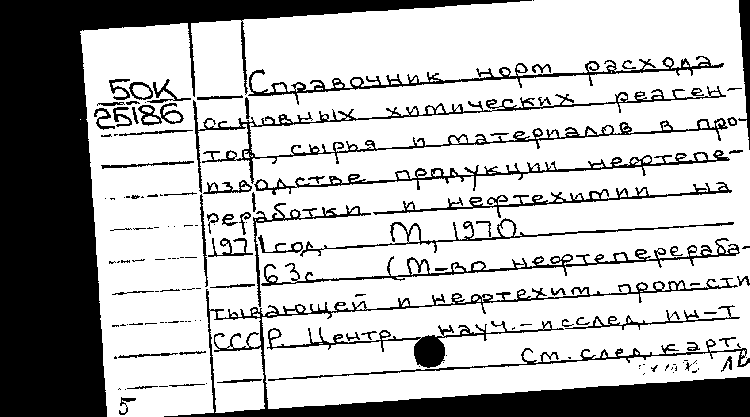 50К
25186
Справочник норм расхода
основных химических реаген-
тов, сырья и материалов в про-
изводстве продукции нефтепе-
реработки и нефтехимии на
1971 год. М., 1970.
63с (М-во нефтеперераба-
тывающей и нефтехим. пром-сти
СССР. Центр. науч.-исслед. ин-т
См. след. карт.
ЛВ
5